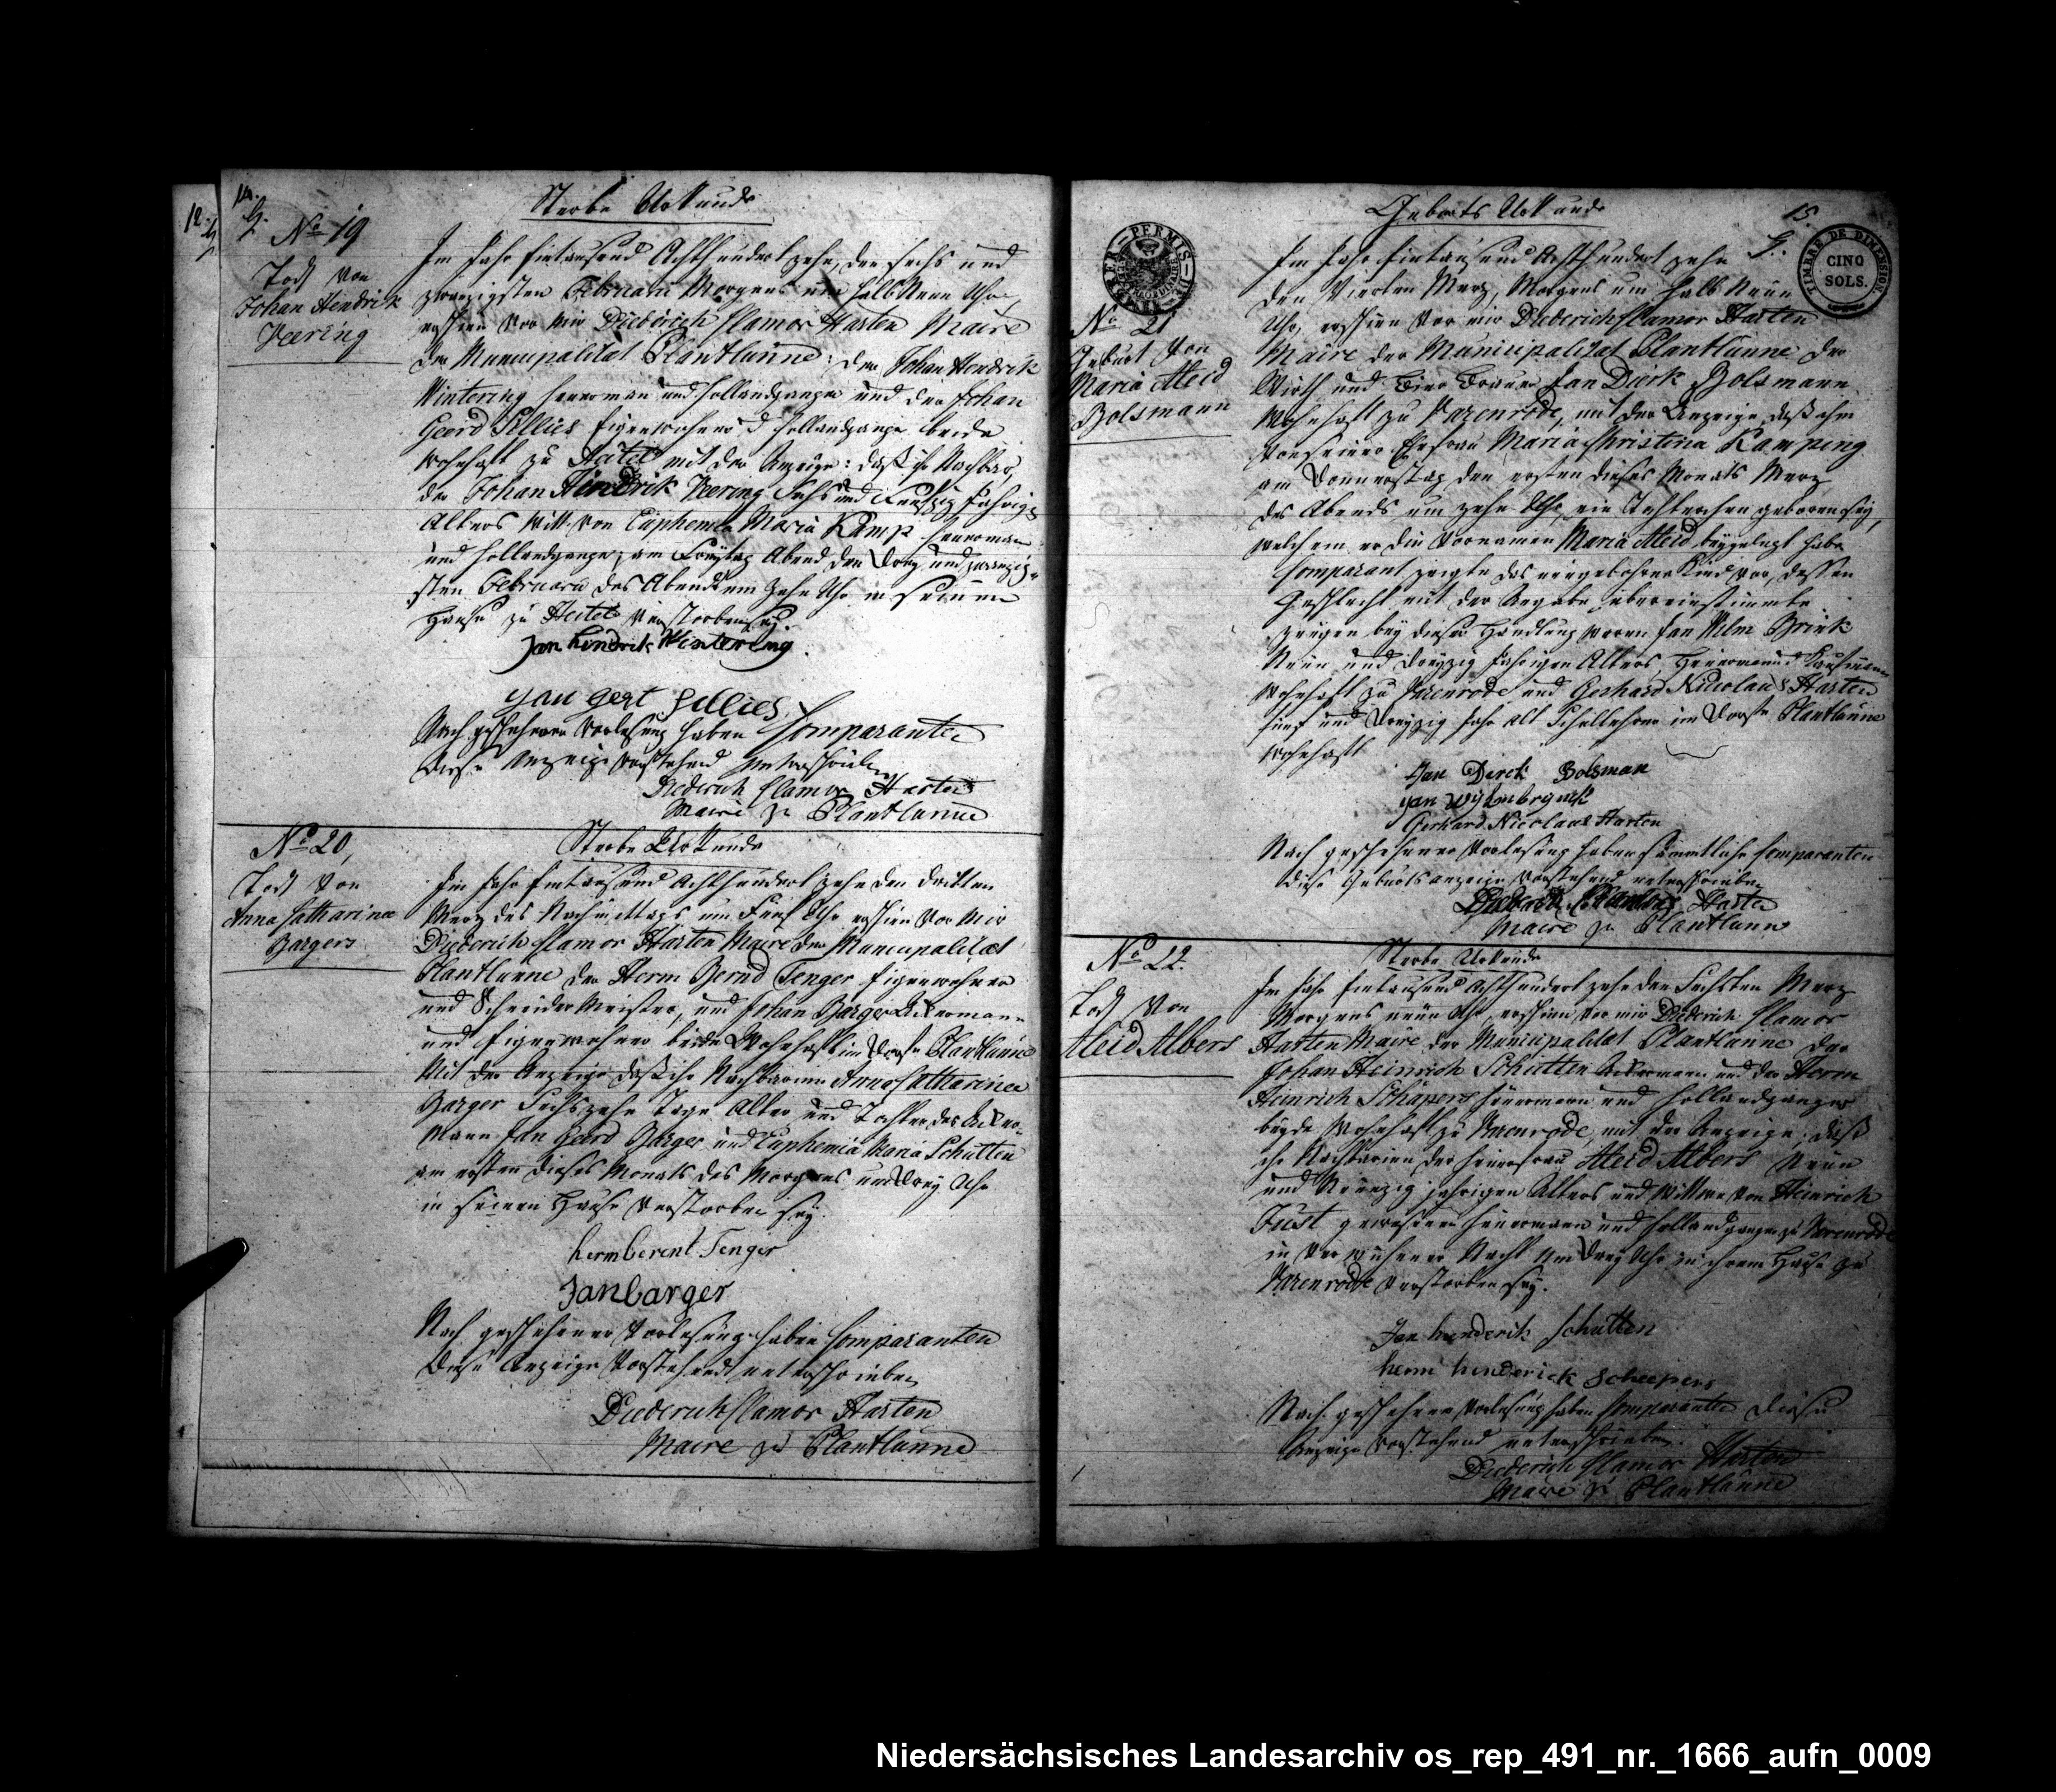 12.
14.
No 19
Sterbe Urkunde
Tod von
Johan Hendrik
Veering
Im Jahr Eintausend Achthundert zehn, den sechs und
zwanzigsten Februari Morgens um halb Neun Uhr,
erschien vor mir Diederich Clamor Harten Maire
der Municipalitat Plantlünne: der Johan Hendrik
Wintering Heuerman und Hollandganger und der Johan
Geerd Sellies Eigenwohner d Hollandganger beide
wohnhaft zu Heitel mit der Anzeige: daß ihr Nachbar,
der Johan Hindrik Veering Sechs und Funfzig Jahrigs
Alters Wittw. von Euphemia Maria Kamp Heuerman
und Hollandganger, am Freytag Abend den Drey und zwanzig-
sten Februari des Abends um zehn Uhr in seinem
Hause zu Heitel verstorben sey.
Jan hendrik Wintering
yan gert sellies
Nach geschehener Vorlesung haben Comparanten
diese Anzeige vorstehend unterschrieben
Diederich Clamor Harten
Maire zu Plantlünne
No 20,
Sterbe Urkunde
Tod von
Anna Catharina
Bargers
Im Jahr Eintausend Achthundert zehn den dritten
Merz des Nachmittags um Fünf Uhr erschien vor mir
Diederich Clamor Harten Maire der Municipalitat
Plantlünne der Herm Bernd Tenger Eigenwohner
und Schneider Meister, und Johan Barger Ackermann
und Eigenwohner beide Wohnhaft im Dorfe Plantlünne
Mit der Anzeige daß ihr Nachbarinn Anna Catharina
Barger Sechszehn Tage Alter und Tochter des Acker-
mann Jan Geerd Barger und Euphemia Maria Schutten
am ersten dieses Monats des Morgens um Drey Uhr
in seinem Hause verstorben sey.
herm berent Tenger
Jan barger
Nach geschehener Vorlesung haben Comparanten
diese Anzeige Vorstehend unterschrieben
Diederich Clamor Harten
Maire zu Plantlünne
15.
Geburts Urkunde
TIMBRE DE DIMENSION.
CINQ
SOLS.
No 21
Geburt von
Maria Aleid
Bolsmann
Im Jahr Eintausend Achthundert zehn
den Vierten Merz, Morgens um halb Neun
Uhr, erschien vor mir Diederich Clamor Harten
Maire der Municipalitat Plantlünne der
Wirth und Bier Brauer Jan Dierk Bolsmann
wohnhaft zu Varenrode, mit der Anzeige, daß ihm
von seiner Ehefrau Maria Christina Kamping
am Donnerstag den ersten dieses Monats Merz
des Abends um zehn Uhr, ein Tochterchen geboren sey,
welchem er die Vornamen Maria Aleid beygelegt habe
Comparant zeigte das neugebohrne Kind vor, dessen
Geschlecht mit der Angabe übereinstimmte
Zeugen bey dieser Handlung waren Jan Wilm Brink
Neun und dreyzig Jahrigen Alters, Heuerman und Kaufmann
wohnhaft zu Varenrode und Gerhard Nicolaus Harten
fünf und dreyzig Jahr alt Schullehrer im Dorfe Plantlünne
wohnhaft
Jan Dirck Bolsman
yan wylm brynck
Gerhard Nicolaus Harten
Nach geschehener Vorlesung haben sämmtliche Comparenten
diese Geburts anzeige Vorstehend unterschrieben
Diederich Clamor Harten
Maire zu Plantlünn
No 22.
Sterbe Urkunde
Tod von
Aleid Albers
Im Jahr Eintausend Achthundert zehn den Sechsten Merz
Morgens neun Uhr, erschien vor mir Diederich Clamor
Harten Maire der Municipalitat Plantlünne der
Johan Heinrich Schütten Ackermann und der Herm
Heinrich Schäpers Heuermann und Hollandganger
beyde Wohnhaft zu Varenrode, mit der Anzeige: daß
ihr Nachbarinn der Heuerfrau Aleid Albers Neun
und Neunzig jahrigen Alters und Wittwe von Heinrich
Just gewesener Heuermann und Hollandganger zu Varenrode
in vorwichener Nacht um Drey Uhr in ihrem Hause zu
Varenrode verstorben sey.
Jan henderik Schutten
herm henderick scheepers
Nach geschehener Vorlesung haben Comparenten diese
Anzeige Vorstehend unterschrieben.
Diederich Clamor Harten
Maire zu Plantlünne
Niedersächsisches Landesarchiv os_rep_491_nr._1666_aufn_0009